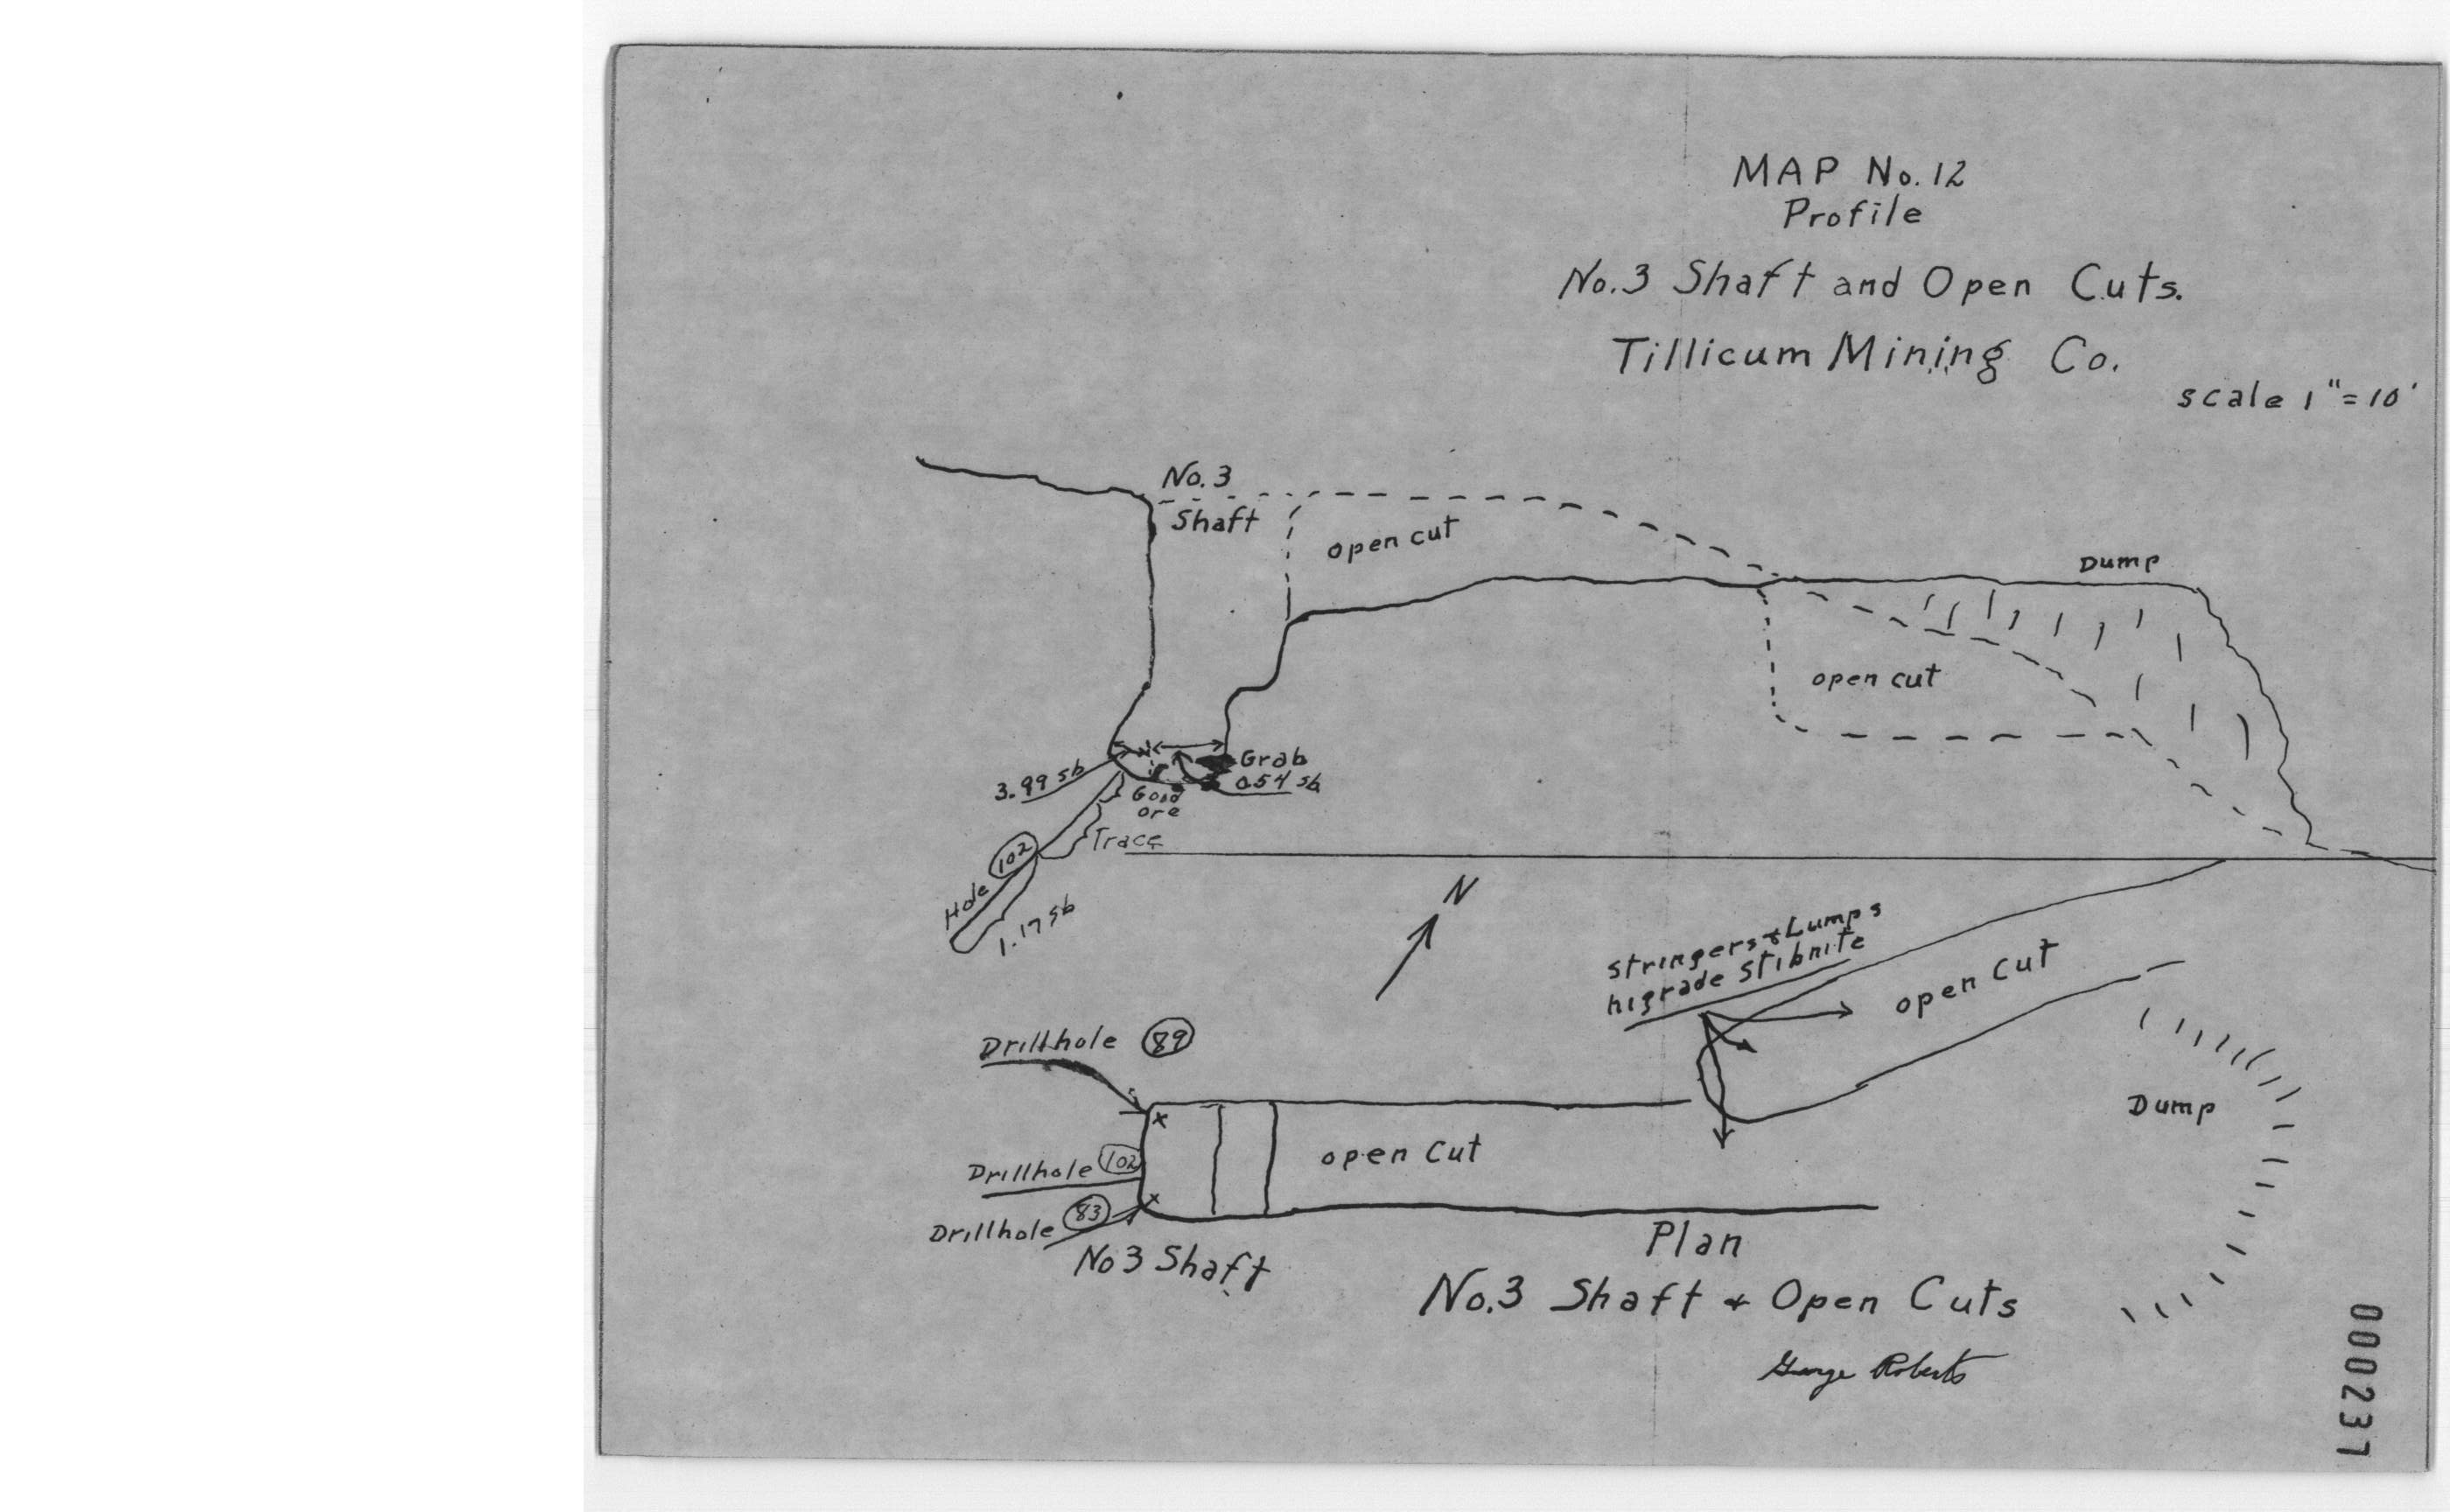 MAP No. 12
Profile
No. 3 Shaft and Open Cuts.
Tillicum Mining Co.
scale 1" = 10'
No. 3
Shaft
open cut
Dump
open cut
3.99 sb
Grab
0.54 sb
Good
ore
Trace
Hole 102
1.17 sb
N
Stringers & Lumps
higrade Stibnite
open cut
Drillhole 89
Dump
open Cut
Drillhole 102
Drillhole 83
No 3 Shaft
Plan
No. 3 Shaft & Open Cuts
George Roberts
000237